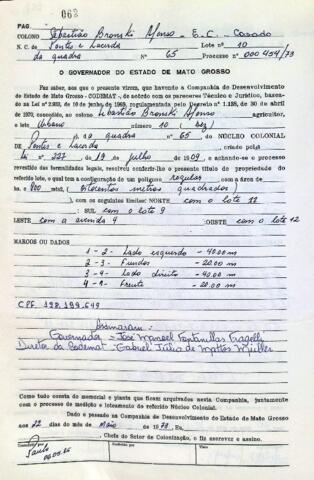 PAG. 062
COLONO Sebastião Bronski Afonso - E.C. - Casado
N. C. de Pontes e Lacerda Lote nº 10
da quadra Nº 65 Processo nº 000454/73
O GOVERNADOR DO ESTADO DE MATO GROSSO
Faz saber, aos que o presente virem, que havendo a Companhia de Desenvolvimento
do Estado de Mato Grosso - CODEMAT -, de acordo com os pareceres Técnico e Jurídico, basea-
do na Lei nº 2.923, de 10 de junho de 1969, regulamentada pelo Decreto nº 1.138, de 30 de abril
de 1970, concedido, ao colono, Sebastião Bronski Afonso agricultor,
o lote Urbano número 10 (dez)
da quadra nº 65 do NÚCLEO COLONIAL
de Pontes e Lacerda, criado pela
Lei nº 227 de 19 de julho de 1909, e achando-se o processo
revestido das formalidades legais, resolveu conferir-lhe o presente título de propriedade do
referido lote, o qual tem a configuração de um polígono regular com a área de
ha. e 800 mts2, ( Oitocentos metros quadrados )
com os seguintes limites: NORTE com o lote 11
: SUL com o lote 9
LESTE com a avenida 4 : OESTE com o lote 12
MARCOS OU DADOS
1 - 2 - Lado esquerdo - 40,00 m
2 - 3 - Fundos - 20,00 m
3 - 4 - Lado direito - 40,00 m
4 - 1 - Frente - 20,00 m
C.P.F. 128.199.649
Assinaram:
Governador - José Manoel Fontanillas Fragelli
Diretor da Codemat - Gabriel Júlio de Mattos Müller
Como tudo consta do memorial e planta que ficam arquivados nesta Companhia, juntamente
com o processo de medição e loteamento do referido Núcleo Colonial.
Dado e passado na Companhia de Desenvolvimento do Estado de Mato Grosso
aos 22 dias do mês de Maio de 1973, Eu,
, Chefe do Setor de Colonização, o fiz escrever e assino.
Paulo